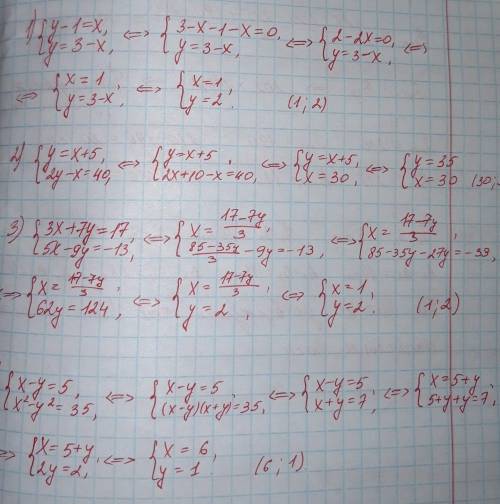 1) { y-1=x, y=3-x, <=> { 3-x-1-x=0, y=3-x, <=> { 2-2x=0, y=3-x, <=>
<=> { x=1, y=3-x; <=> { x=1; y=2. (1; 2)
2) { y=x+5, 2y-x=40, <=> { y=x+5, 2x+10-x=40, <=> { y=x+5, x=30, <=> { y=35 x=30 (30;
3) { 3x+7y=17, 5x-9y=-13, <=> { x=(17-7y)/3; (85-35y)/3-9y=-13, <=> { x=(17-7y)/3; 85-35y-27y=-39,
<=> { x=(17-7y)/3; 62y=124, <=> { x=(17-7y)/3; y=2, <=> { x=1; y=2. (1; 2)
{ x-y=5, x²-y²=35, <=> { x-y=5; (x-y)(x+y)=35, <=> { x-y=5; x+y=7; <=> { x=5+y 5+y+y=7;
=> { x=5+y, 2y=2, <=> { x=6, y=1 (6; 1)